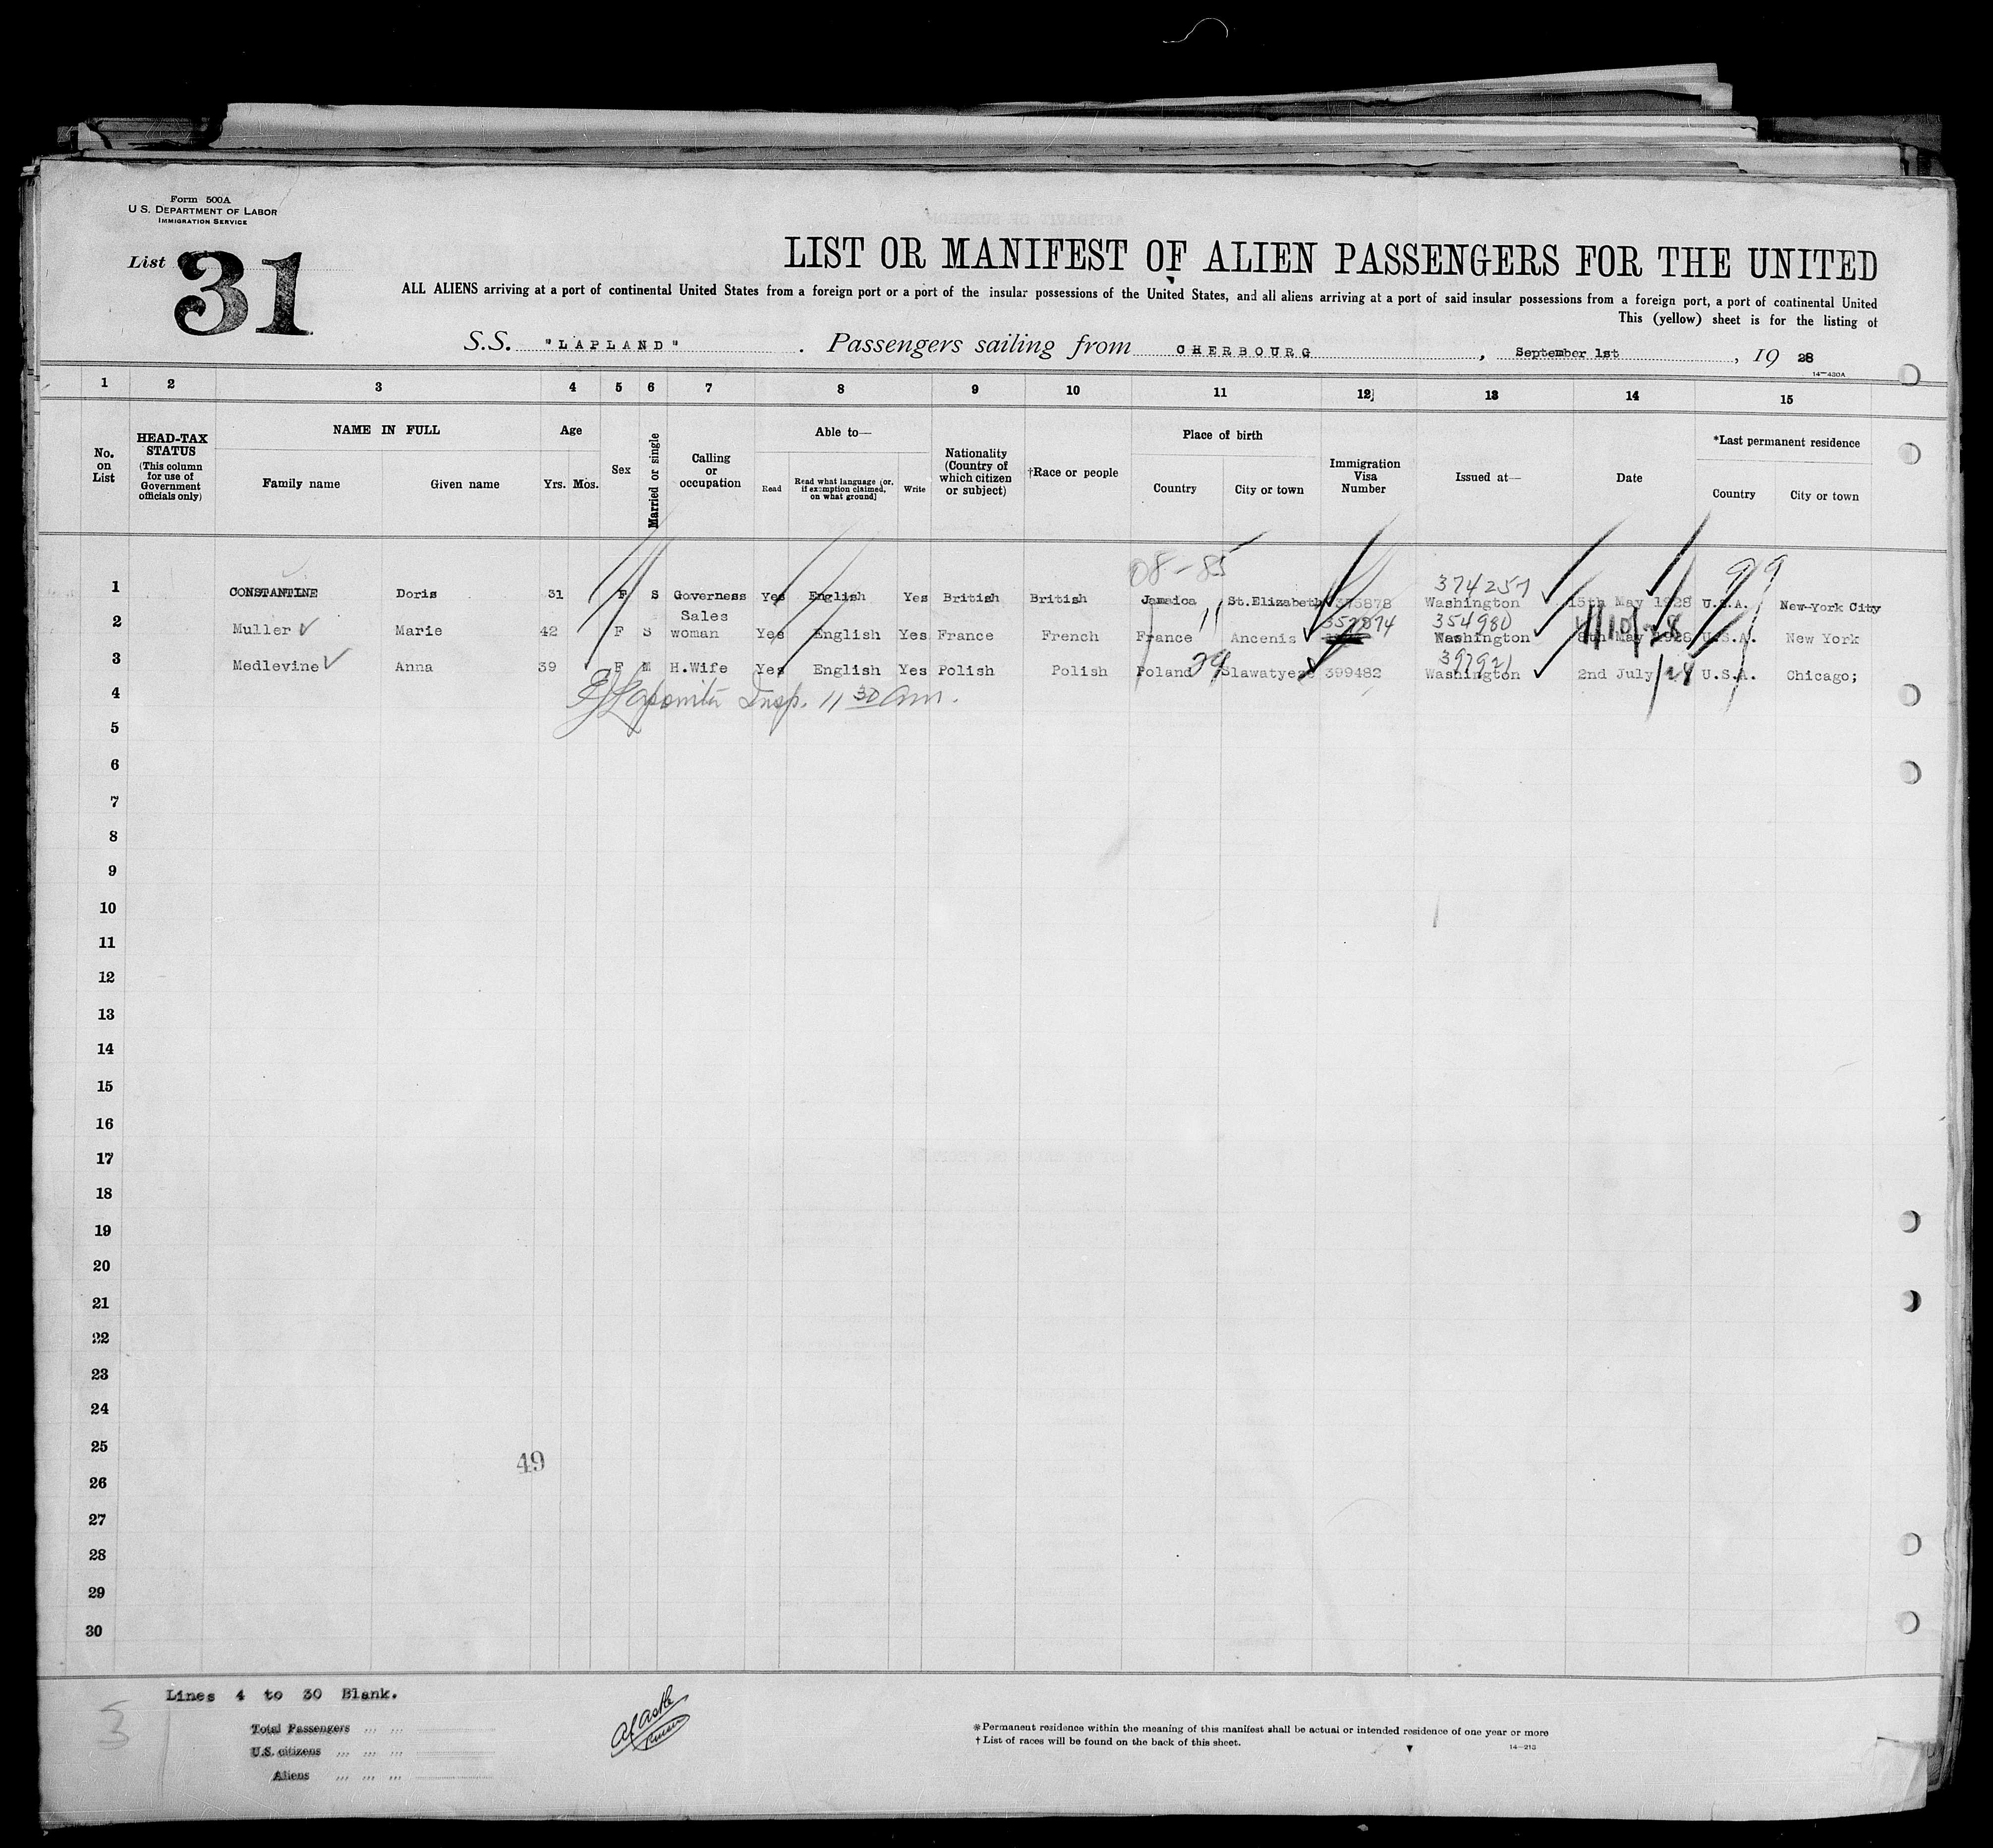 Form 500A
U S. DEPARTMENT OF LABOR
IMMIGRATION SERVICE
List 31
LIST OR MANIFEST OF ALIEN PASSENGERS FOR THE UNITED
ALL ALIENS arriving at a port of continental United States from a foreign port or a port of the insular possessions of the United States, and all aliens arriving at a port of said insular possessions from a foreign port, a port of continental United
This (yellow) sheet is for the listing of
S.S. "LAPLAND" . Passengers sailing from CHERBOURG , September 1st , 19 28
14—430A
1 2 3 4 5 6 7 8 9 10 11 12 13 14 15
No. on List
HEAD-TAX STATUS
(This column for use of Government officials only)
NAME IN FULL
Family name Given name
Age
Yrs. Mos.
Sex
Married or single
Calling or occupation
Able to—
Read
Read what language (or, if exemption claimed, on what ground)
Write
Nationality (Country of which citizen or subject)
†Race or people
Place of birth
Country City or town
Immigration Visa Number
Issued at—
Date
*Last permanent residence
Country City or town
08-85 374257 99
1 CONSTANTINE Doris 31 F S Governess Yes English Yes British British Jamaica St.Elizabeth 375878 Washington 15th May 1928 U.S.A. New-York City
11 354980
2 Muller Marie 42 F S Sales woman Yes English Yes France French France Ancenis Washington 8th May 1928 U.S.A. New York
29
3 Medlevine Anna 39 F M H.Wife Yes English Yes Polish Polish Poland 399482 Washington 2nd July U.S.A. Chicago;
4 Insp. 11 30 am.
5
6
7
8
9
10
11
12
13
14
15
16
17
18
19
20
21
22
23
24
25
49
26
27
28
29
30
Lines 4 to 30 Blank.
Total Passengers
U.S. citizens
Aliens
*Permanent residence within the meaning of this manifest shall be actual or intended residence of one year or more
† List of races will be found on the back of this sheet.
14—213